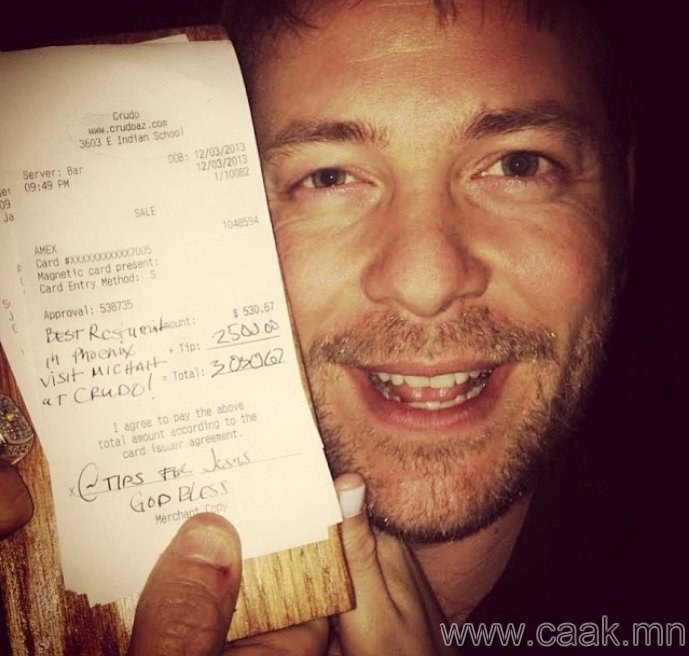 Crudo
www.crudoaz.com
3603 E Indian School
Server: Bar
DOB: 12/03/2013
09:49 PM
12/03/2013
1/10082
SALE
1048594
AMEX
Card #XXXXXXXXXXX7005
Magnetic card present:
Card Entry Method: S
Approval: 538735
Amount: $ 530.67
+ Tip: 2500.00
= Total: 3030.67
BEST Restaurant
IN PHOENIX
VISIT MICHAH
AT CRUDO!
I agree to pay the above
total amount according to the
card issuer agreement.
x @TIPS FOR Jesus
GOD BLESS
Merchant Copy
www.caak.mn